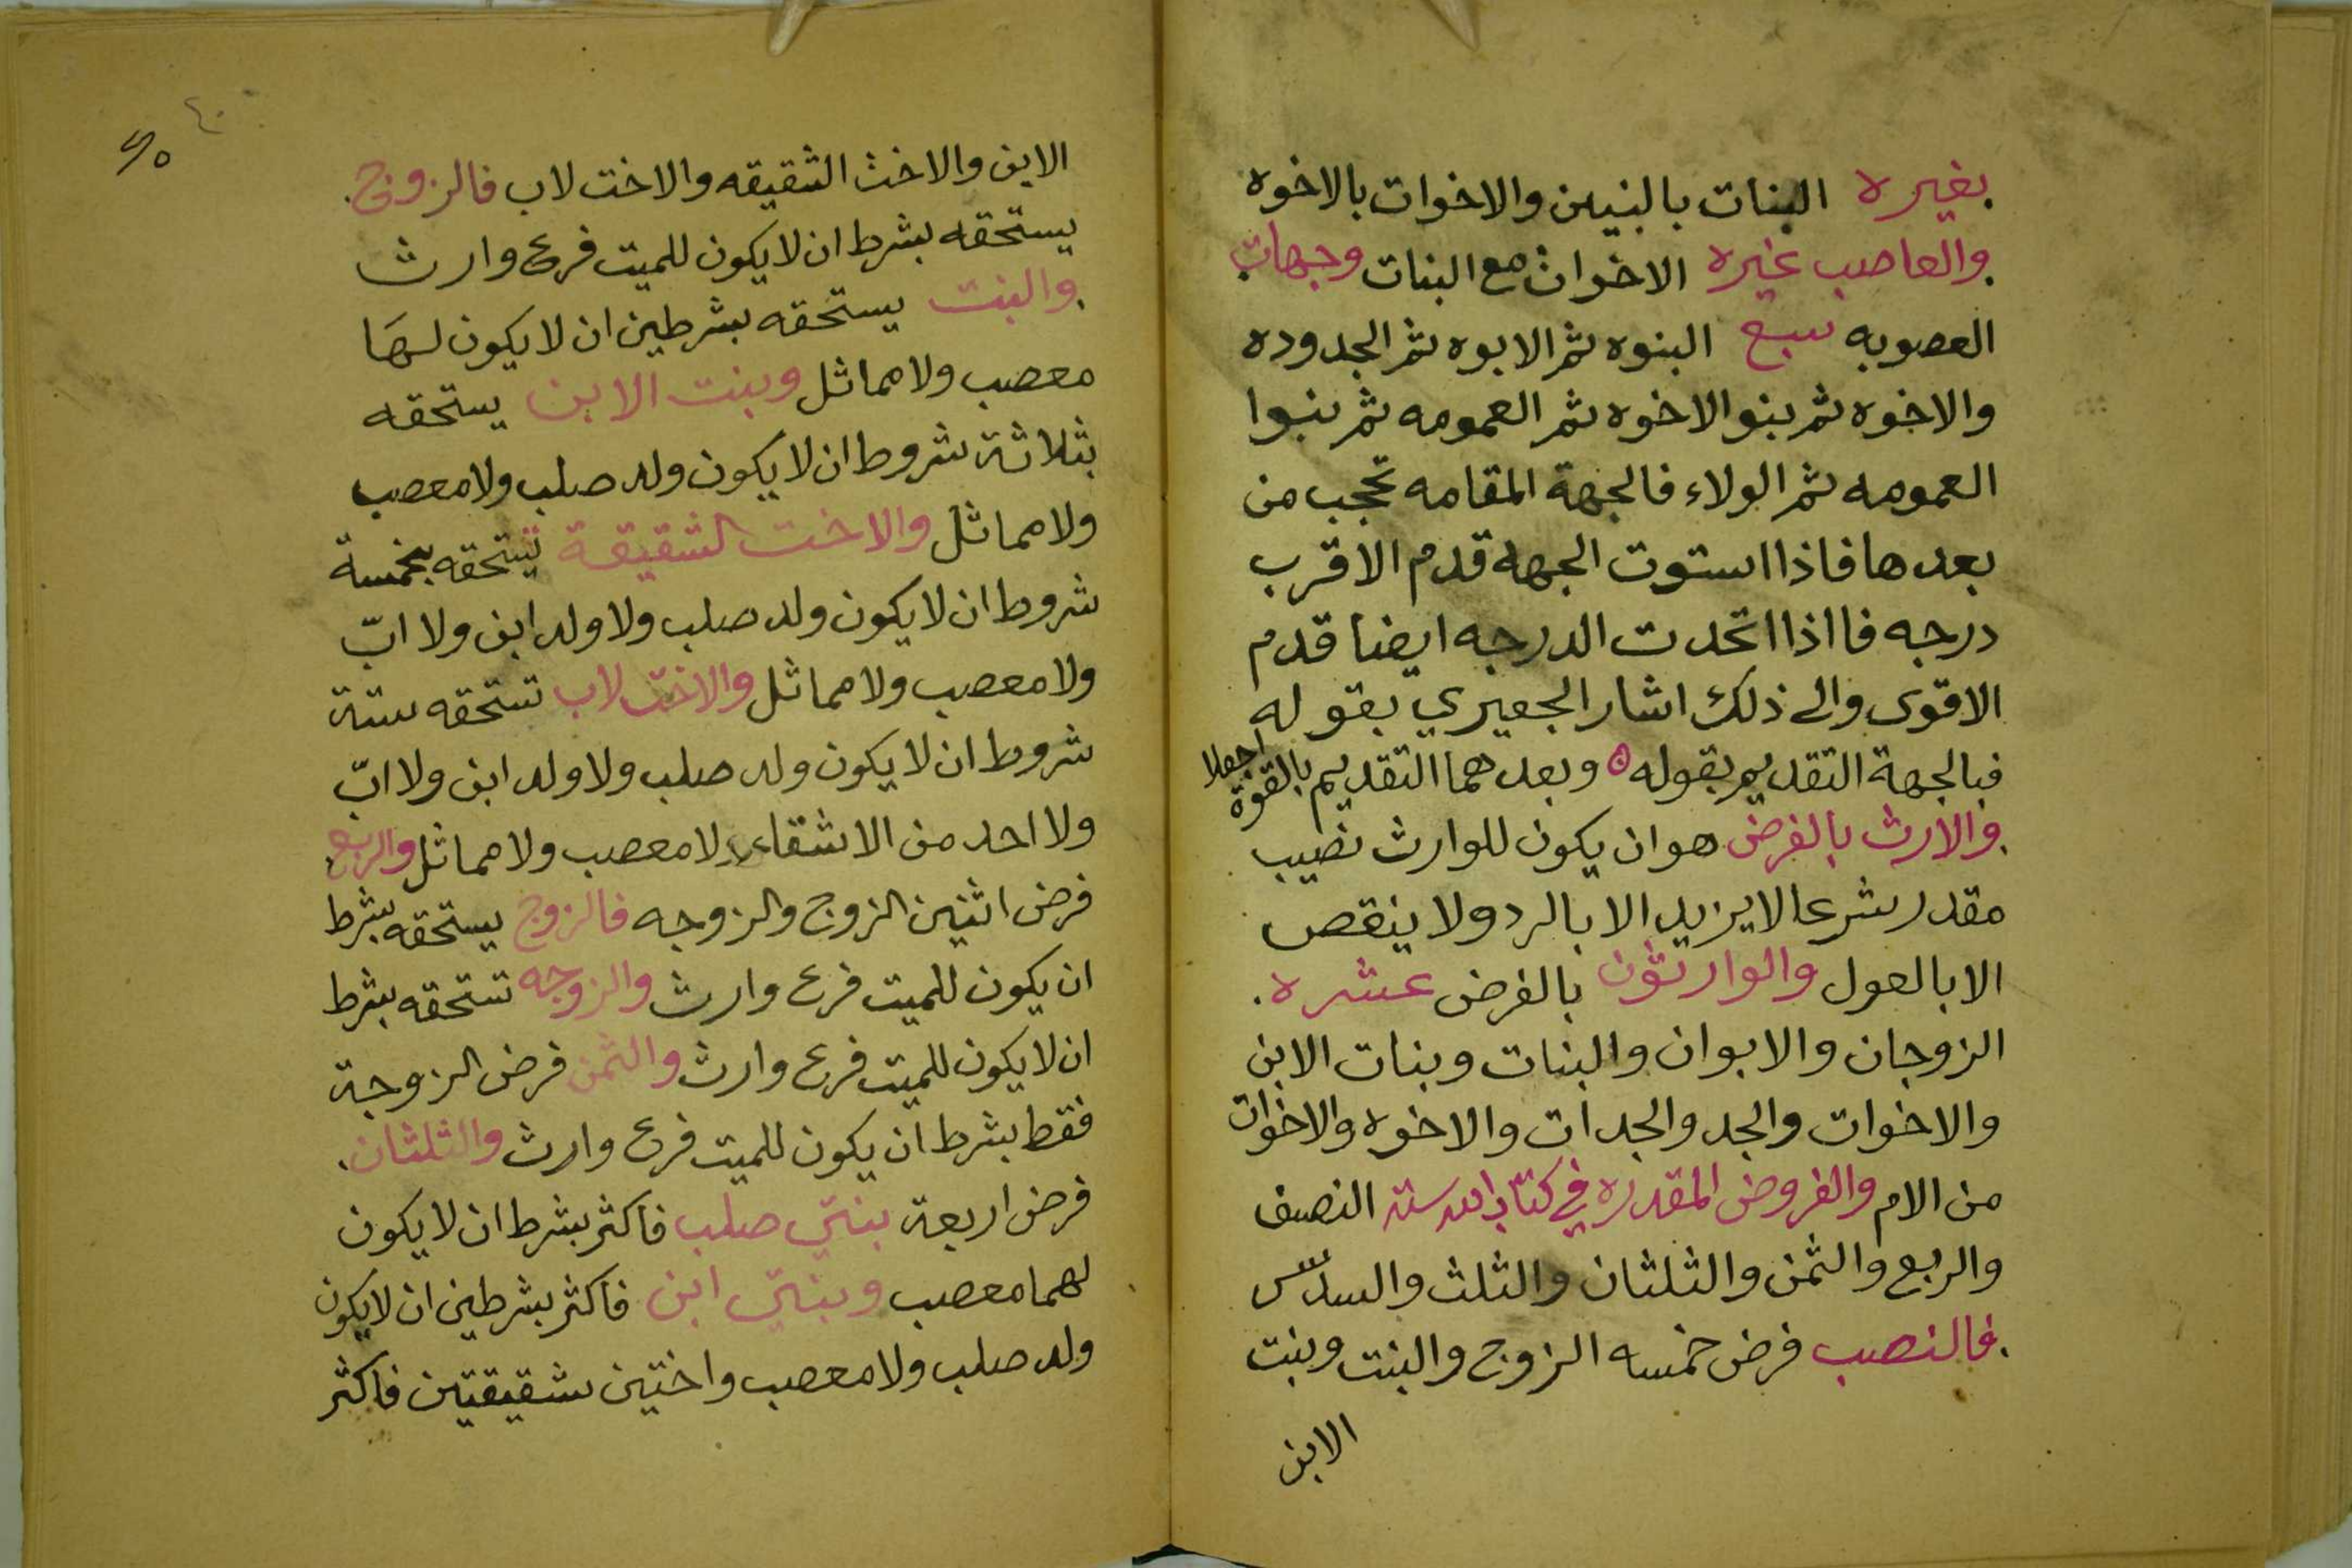 بغيره البنات بالبنين والاخوات بالاخوه
والعاصب غيره الاخوات مع البنات وجهات
العصوبه سبع البنوه ثم الابوه ثم الجدوده
والاخوه ثم بنوا الاخوه ثم العمومه ثم بنوا
العمومه ثم الولاء فالجهة المقامه تحجب من
بعدها فاذا استوت الجهه قدم الاقرب
درجه فااذا اتحدت الدرجه ايضا قدم
الاقوى والى ذلك اشار الجعبري بقوله
فبالجهة التقديم بقوله ه وبعدهما التقديم بالقوة اجعلا
والارث بالفرض هو ان يكون للوارث نصيب
مقدر شرعا لا يزيد الا بالرد ولا ينقص
الا بالعول والوارثون بالفرض عشره .
الزوجان والابوان والبنات وبنات الابن
والاخوات والجد والجدات والاخوه والاخوات
من الام والفروض المقدره في كتاب الله ستة النصف
والربع والثمن والثلثان والثلث والسدس
فالنصب فرض خمسه الزوج والبنت وبنت
الابن
٤٠
الابن والاخت الشقيقه والاخت لاب فالزوج
يستحقه بشرط ان لا يكون للميت فرع وارث
والبنت يستحقه بشرطين ان لا يكون لهَا
معصب ولا مماثل وبنت الابن يستحقه
بثلاثة شروط ان لا يكون ولد صلب ولا معصب
ولا مماثل والاخت الشقيقة تستحقه بخمسة
شروط ان لا يكون ولد صلب ولا ولد ابن ولا ابّ
ولا معصب ولا مماثل والاخت لاب تستحقه ستة
شروط ان لا يكون ولد صلب ولا ولد ابن ولا ابّ
ولا احد من الاشقاء ولا معصب ولا مماثل والربع
فرض اثنين الزوج والزوجه فالزوج يستحقه بشرط
ان يكون للميت فرع وارث والزوجه تستحقه بشرط
ان لا يكون للميت فرع وارث والثمن فرض الزوجة
فقط بشرط ان يكون للميت فرع وارث والثلثان
فرض اربعة بنتي صلب فاكثر بشرط ان لا يكون
لهما معصب وبنتي ابن فاكثر بشرطين ان لا يكون
ولد صلب ولا معصب واختين شقيقتين فاكثر